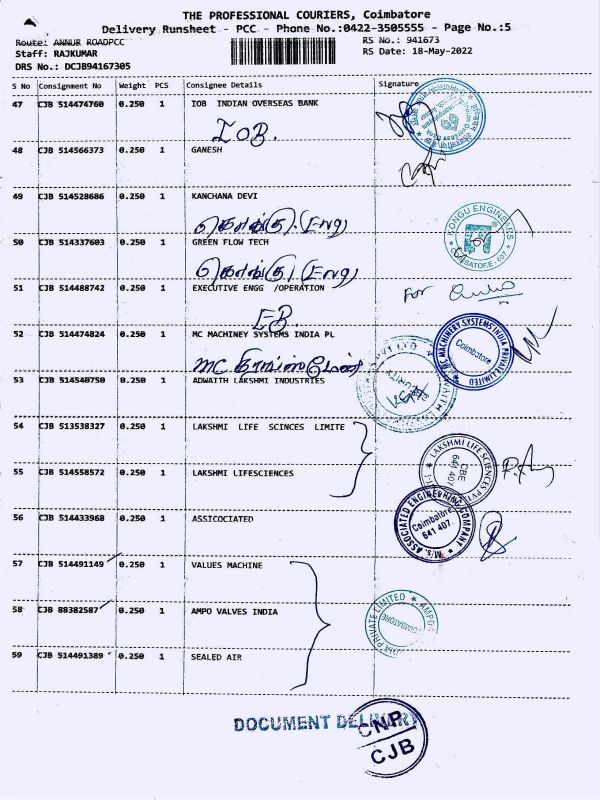 THE PROFESSIONAL COURIERS, Coimbatore
Delivery Runsheet - PCC - Phone No.:0422-3505555 - Page No.:5
Route: ANNUR ROADPCC
RS No.: 941673
Staff: RAJKUMAR
RS Date: 18-May-2022
DRS No.: DCJB94167305
S No Consignment No Weight PCS Consignee Details Signature
47 CJB 514474760 0.250 1 IOB INDIAN OVERSEAS BANK
IOB.
48 CJB 514566373 0.250 1 GANESH
49 CJB 514528686 0.250 1 KANCHANA DEVI
KONGU ENGINEERS
கொங்கு. (Eng)
50 CJB 514337603 0.250 1 GREEN FLOW TECH
கொங்கு (Eng)
51 CJB 514488742 0.250 1 EXECUTIVE ENGG /OPERATION
For
EB.
52 CJB 514474824 0.250 1 MC MACHINEY SYSTEMS INDIA PL
MC MACHINERY SYSTEMS INDIA PRIVATE LIMITED
Coimbatore
MC.
53 CJB 514540750 0.250 1 ADWAITH LAKSHMI INDUSTRIES
SECURITY
54 CJB 513538327 0.250 1 LAKSHMI LIFE SCINCES LIMITE
LAKSHMI LIFE SCIENCES PVT
CBE
641 407
55 CJB 514558572 0.250 1 LAKSHMI LIFESCIENCES
56 CJB 514433968 0.250 1 ASSICOCIATED
M/s. ASSOCIATED ENGINEERING COMPANY
Coimbatore
641 407.
57 CJB 514491149 0.250 1 VALUES MACHINE
58 CJB 88382587 0.250 1 AMPO VALVES INDIA
PRIVATE LIMITED AMPO
COIMBATORE
59 CJB 514491389 0.250 1 SEALED AIR
DOCUMENT DELIVERY
CNP
CJB